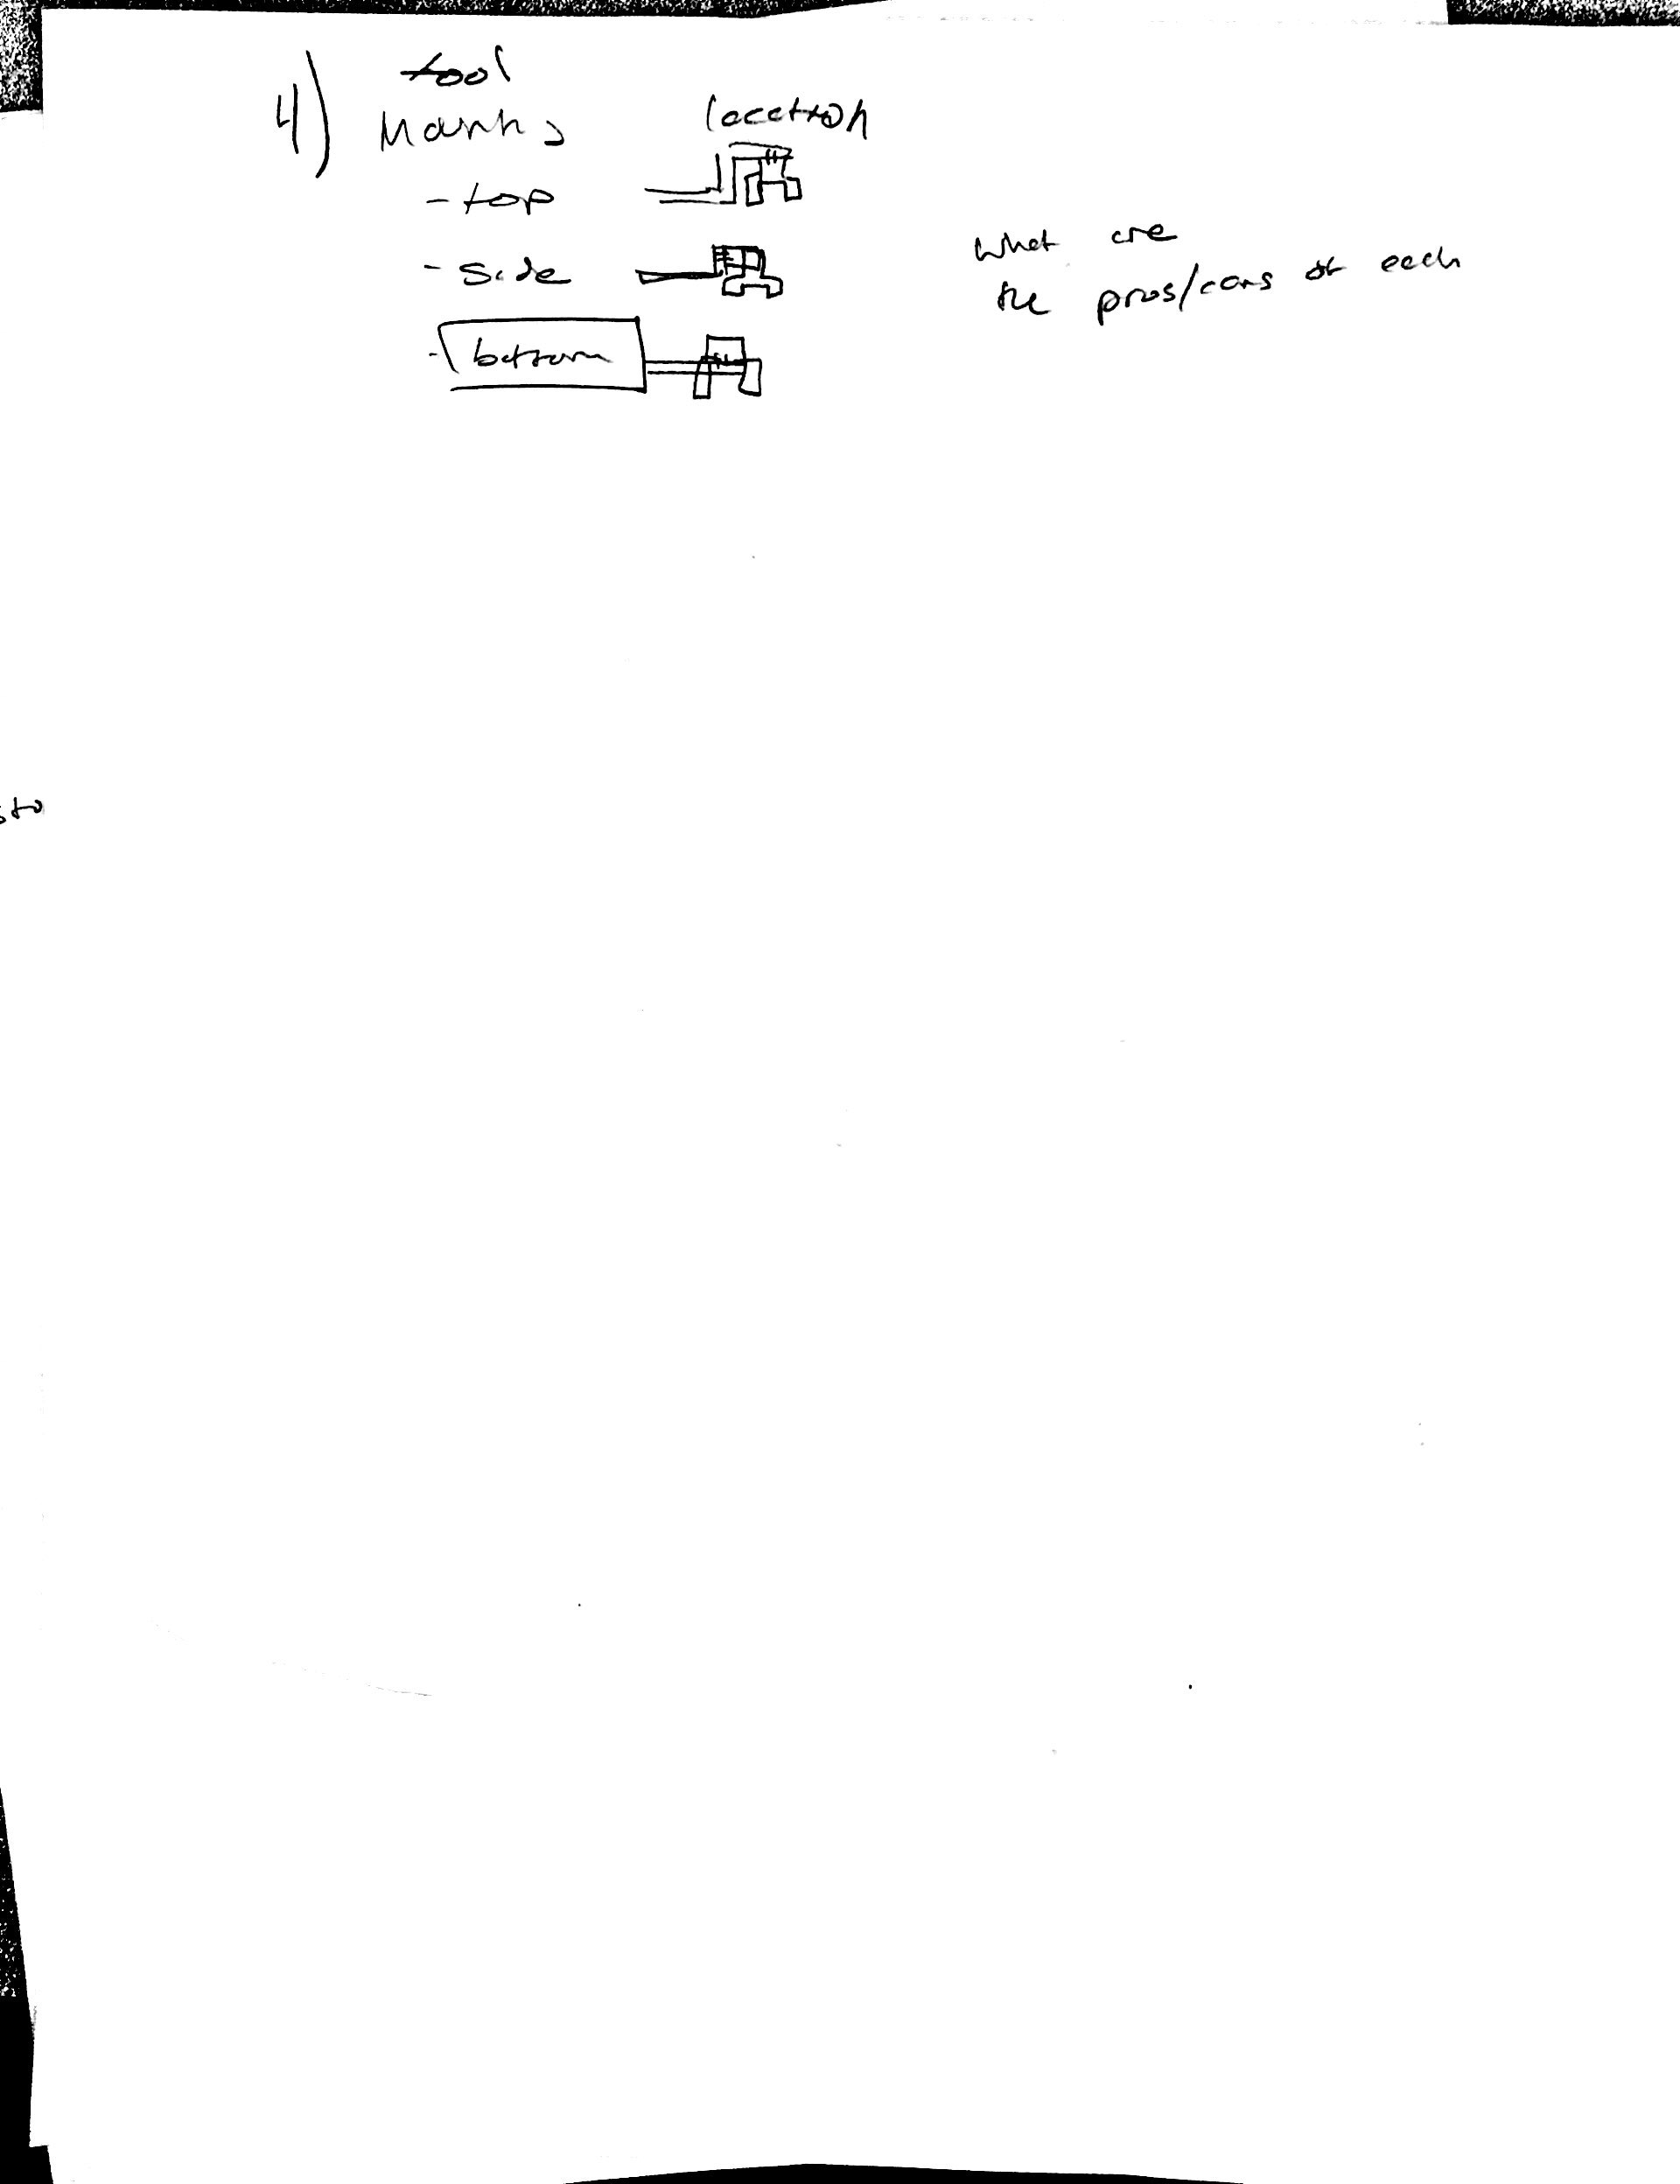 4) tool
Marks location
- top
- side
- bottom
What are
the pros/cons of each
sto